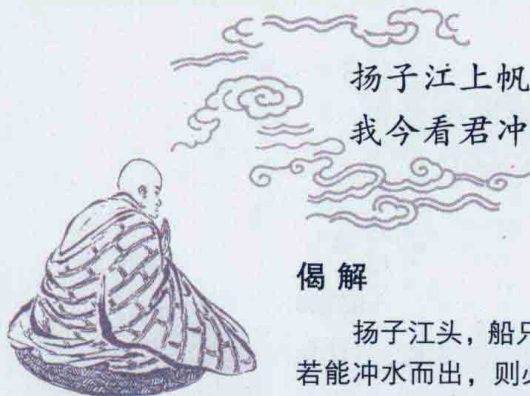 扬子江上帆
我今看君冲
偈解
扬子江头，船只
若能冲水而出，则必